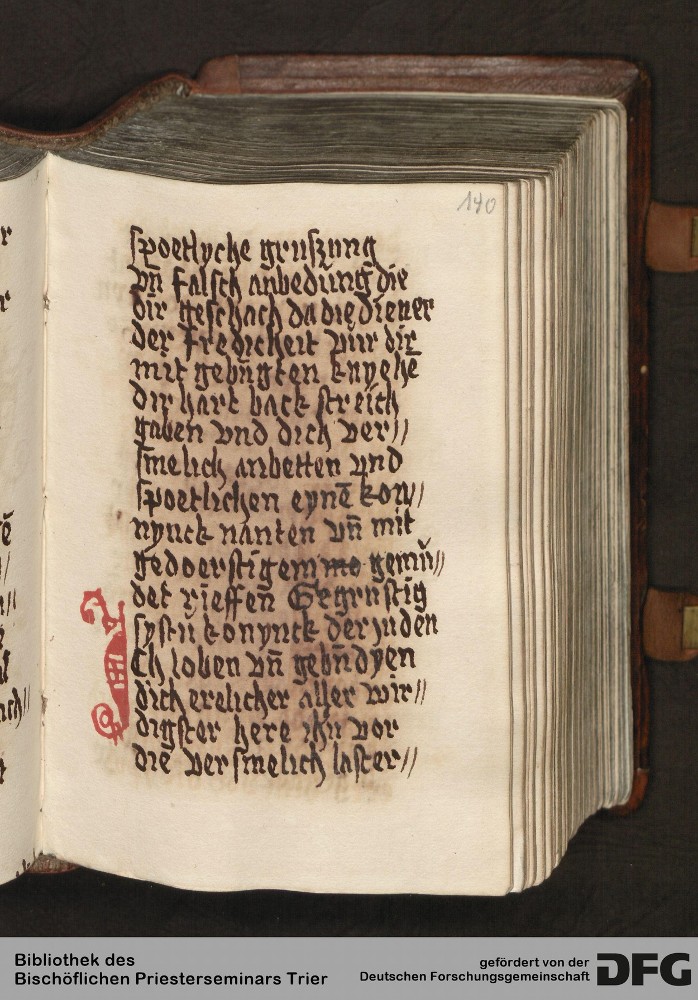 190
spoetlyche gruszung
vn̄ falsch anbedung die
dir geschach da die diener
der fredicheit vur dir
mit gebugten knyehē
dir hart back streich
gaben vnd dich ver//
smelich anbetten vnd
spoetlichen eynē kon//
nynck nanten vn̄ mit
gedoerstigem me gemū//
det rieffen Gegrustig
systu konynck der juden
Ich loben vn̄ gebn̄dyen
dich erelicher aller wir//
digster here ihū vor
die versmelich laster//
Bibliothek des
Bischöflichen Priesterseminars Trier
gefördert von der
Deutschen Forschungsgemeinschaft DFG